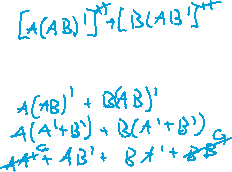 [A(AB)']'' + [B(AB)']''
A(AB)' + B(AB)'
A(A'+B') + B(A'+B')
AA' + AB' + BA' + BB'